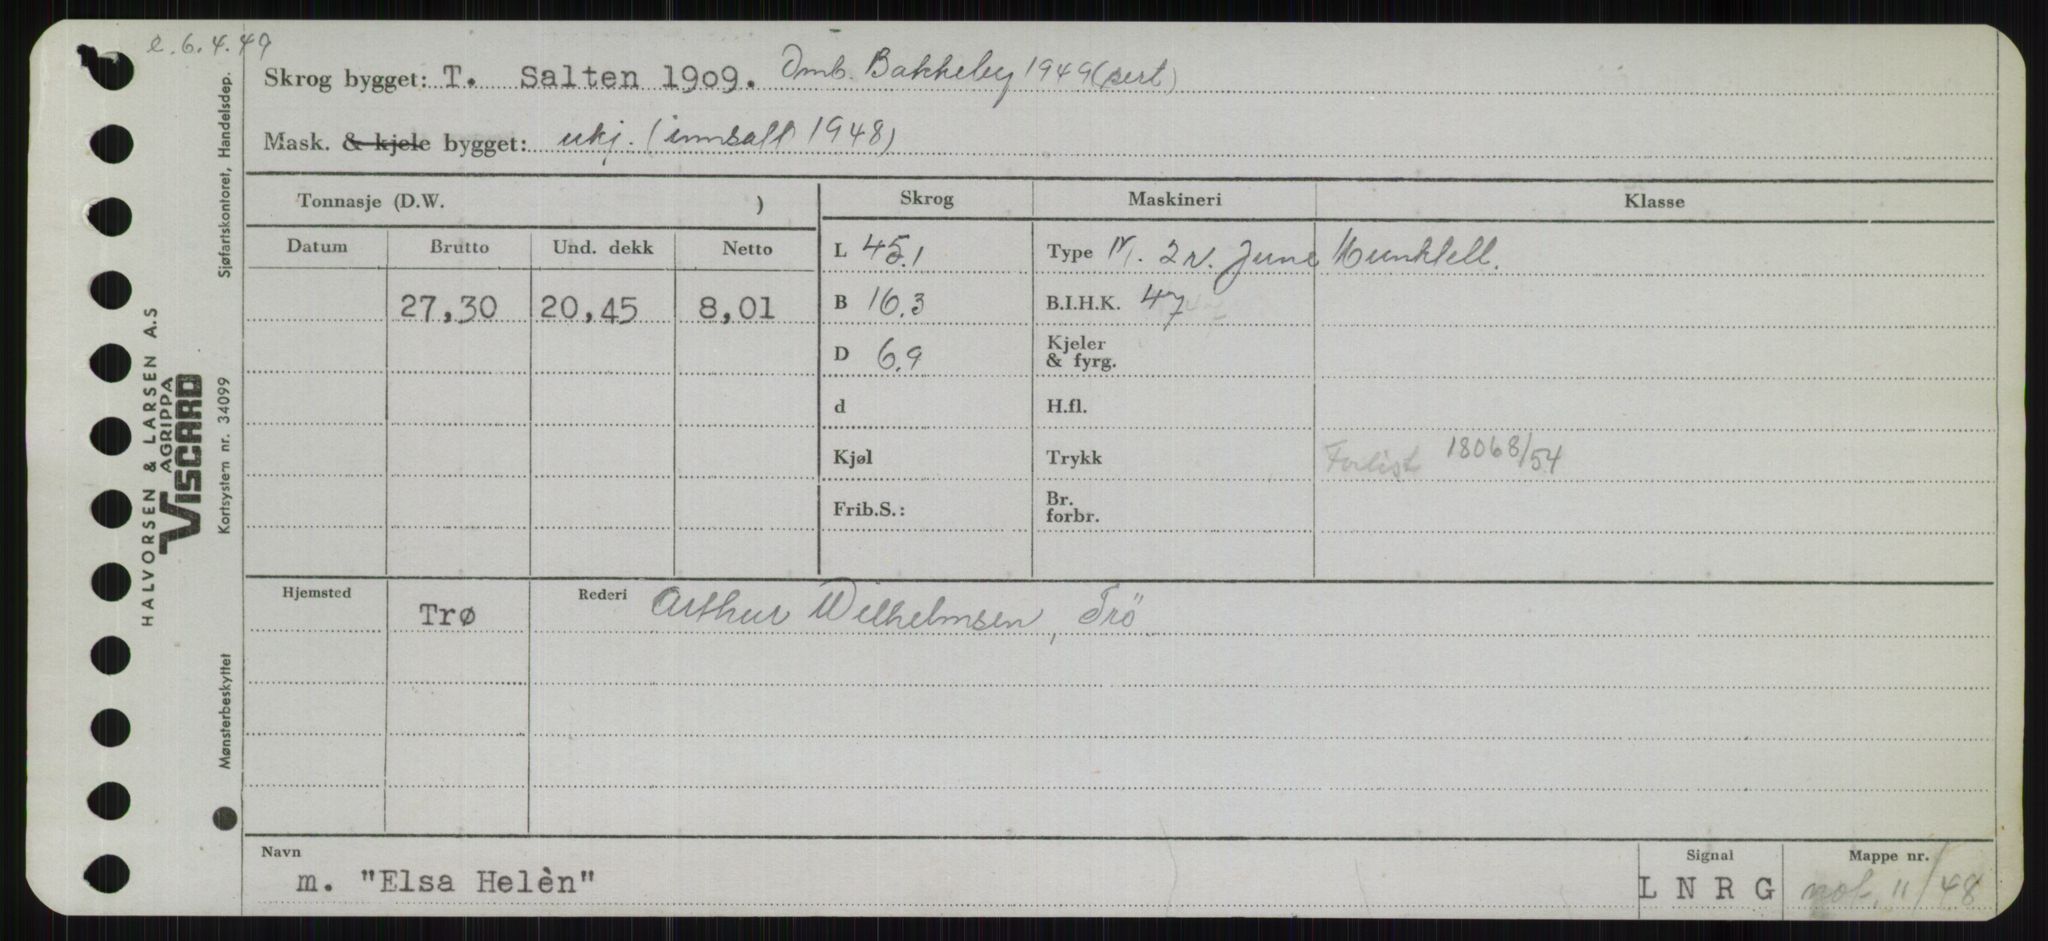 e. 6.4.49
Skrog bygget: T. Salten 1909. Omb. Bakkeby 1949 (sert)
Mask. & kjele bygget: ukj. (innsatt 1948)
Tonnasje (D.W. )
Skrog Maskineri Klasse
Datum Brutto Und. dekk Netto
L 45.1 Type 2 v. June Munktell.
27,30 20,45 8,01
B 16.3 B.I.H.K. 47
D 6.9 Kjeler & fyrg.
d H.fl.
Kjøl Trykk Forlist 18068/54
Frib.S.: Br. forbr.
Hjemsted Trø Rederi Arthur Wilhelmsen, Trö
Navn Signal Mappe nr.
m. "Elsa Helèn" L N R G not. 11/48
HALVORSEN & LARSEN A.S
AGRIPPA
VISCARD
Mønsterbeskyttet Kortsystem nr. 34099 Sjøfartskontoret, Handelsdep.